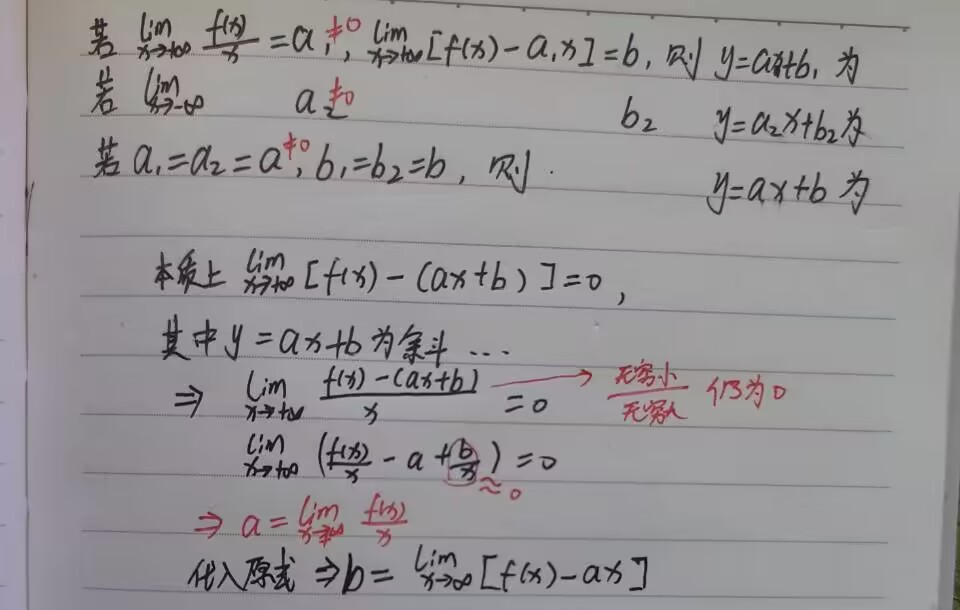 若 lim x→+∞ f(x)/x = a₁≠0, lim x→+∞ [f(x)-a₁x]=b, 则 y=ax+b₁ 为
若 lim x→-∞ a₂≠0 b₂ y=a₂x+b₂为
若 a₁=a₂=a≠0, b₁=b₂=b, 则 . y=ax+b 为
本质上 lim x→+∞ [f(x)-(ax+b)]=0,
其中 y=ax+b 为斜…
⇒ lim x→+∞ f(x)-(ax+b)/x =0 → 无穷小/无穷大 仍为0
lim x→+∞ (f(x)/x - a + b/x)=0 ≈0
⇒ a= lim x→∞ f(x)/x
代入原式 ⇒ b= lim x→∞ [f(x)-ax]